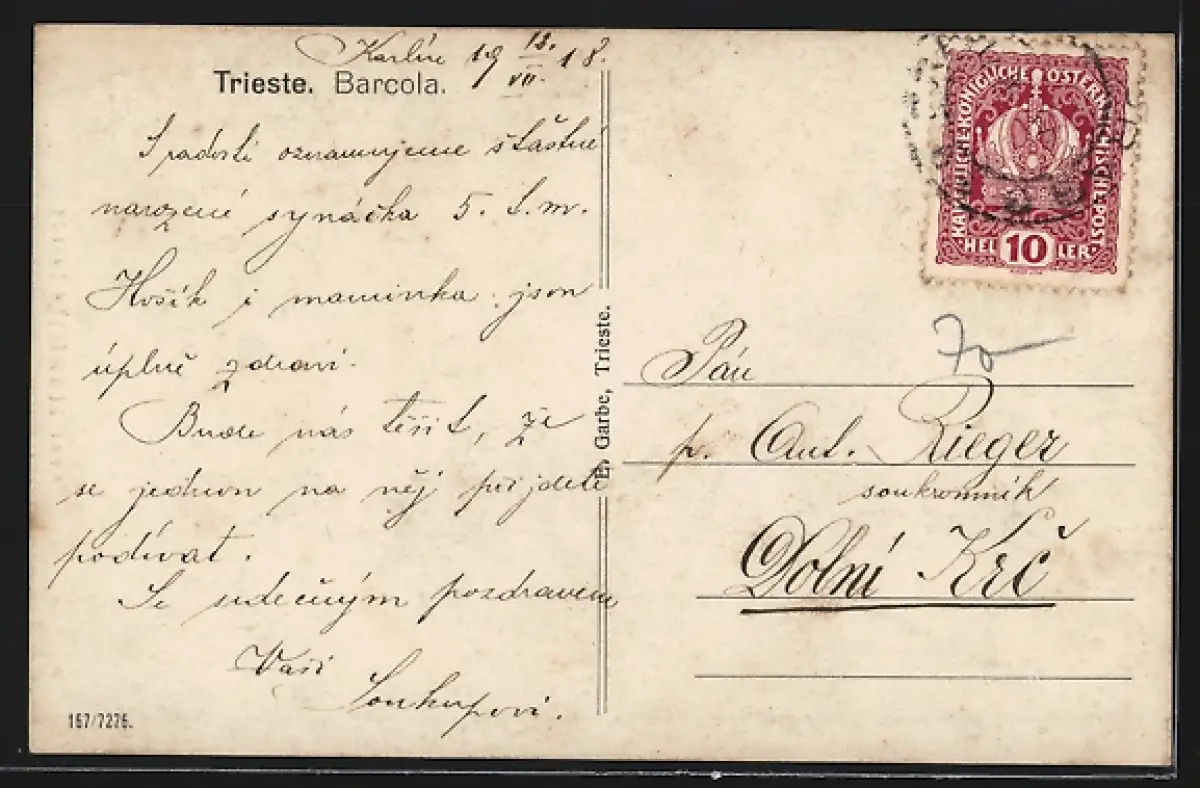 Karlín 19 18./VII. 18.
Trieste. Barcola.
S radostí oznamujeme šťastné
narození synáčka 5. t. m.
Hošík i maminka jsou
úplně zdraví.
Bude nás těšit, že
se jednou na něj přijdete
podívat.
Se srdečným pozdravem
Vaši
Soukupovi.
167/7276.
E. Garbe, Trieste.
KAISERLICHE KÖNIGLICHE ÖSTERREICHISCHE POST
HEL 10 LER
70
Pán
p. Ant. Rieger
soukromník
Dolní Krč